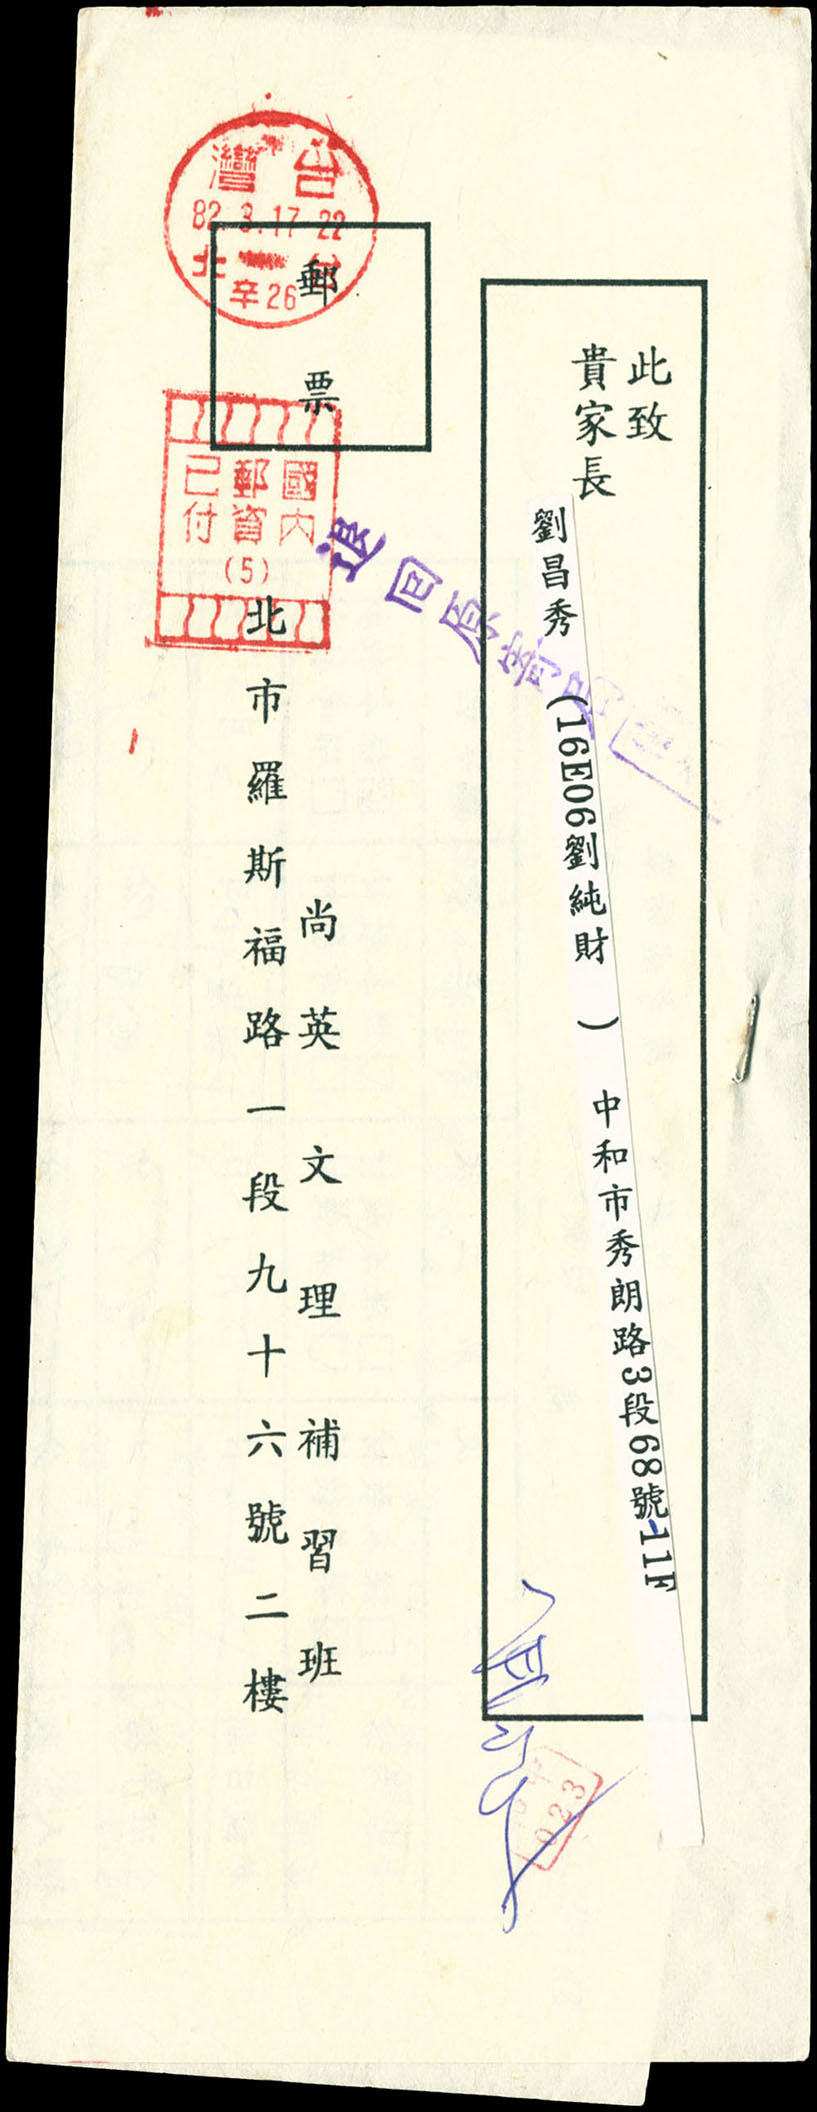 此致
貴家長
劉昌秀 (16E06劉純財 ) 中和市秀朗路3段68號-11F
退回原寄局
郵票
台灣
82.3.17-22
台北
辛26
國內
郵資
已付
(5)
尚英文理補習班
北市羅斯福路一段九十六號二樓
023